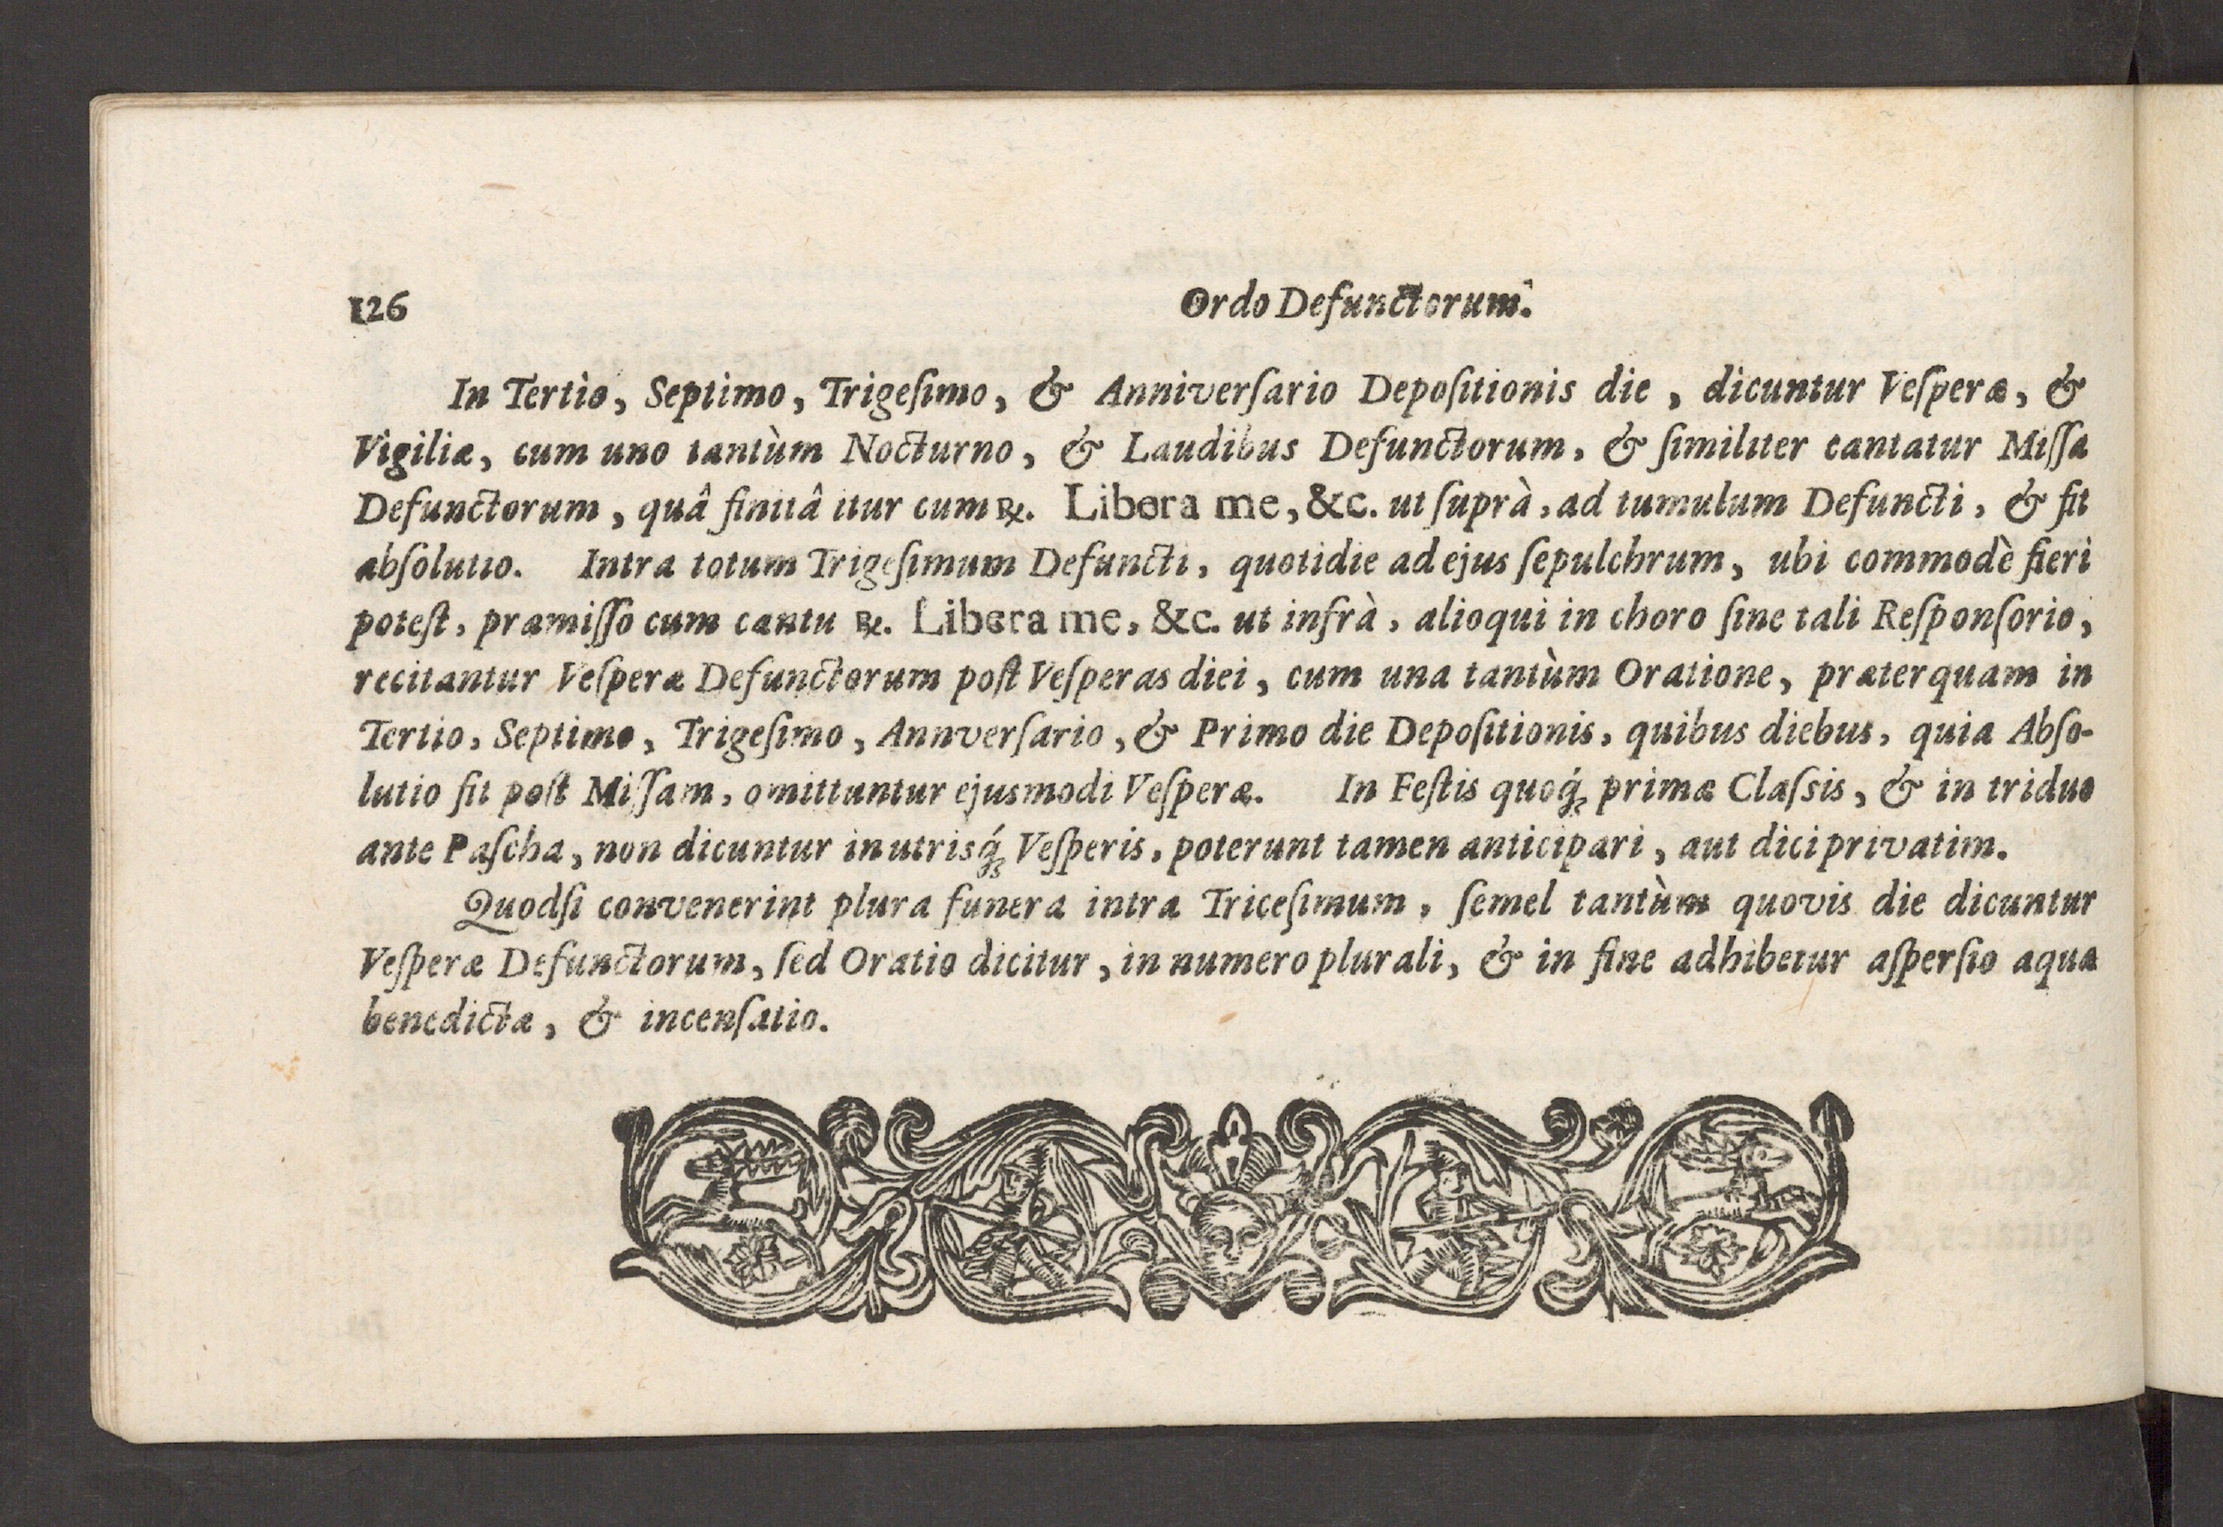 126
Ordo Defunctorum.
In Tertio, Septimo, Trigeſimo, & Anniverſario Depoſitionis die, dicuntur Veſperæ, &
Vigiliæ, cum uno tantùm Nocturno, & Laudibus Defunctorum, & ſimiliter cantatur Miſſa
Defunctorum, quâ finitâ itur cum ℞. Libera me, &c. ut ſuprà, ad tumulum Defuncti, & fit
abſolutio. Intra totum Trigeſimum Defuncti, quotidie ad ejus ſepulchrum, ubi commodè fieri
poteſt, præmiſſo cum cantu ℞. Libera me, &c. ut infrà, alioqui in choro ſine tali Reſponſorio,
recitantur Veſperæ Defunctorum poſt Veſperas diei, cum una tantùm Oratione, præterquam in
Tertio, Septimo, Trigeſimo, Annverſario, & Primo die Depoſitionis, quibus diebus, quia Abſo-
lutio fit poſt Miſſam, omittuntur ejusmodi Veſperæ. In Feſtis quoq́ꝫ primæ Claſsis, & in triduo
ante Paſcha, non dicuntur in utrisq́ꝫ Veſperis, poterunt tamen anticipari, aut dici privatim.
Quodſi convenerint plura funera intra Triceſimum, ſemel tantùm quovis die dicuntur
Veſperæ Defunctorum, ſed Oratio dicitur, in numero plurali, & in fine adhibetur aſperſio aquæ
benedictæ, & incenſatio.